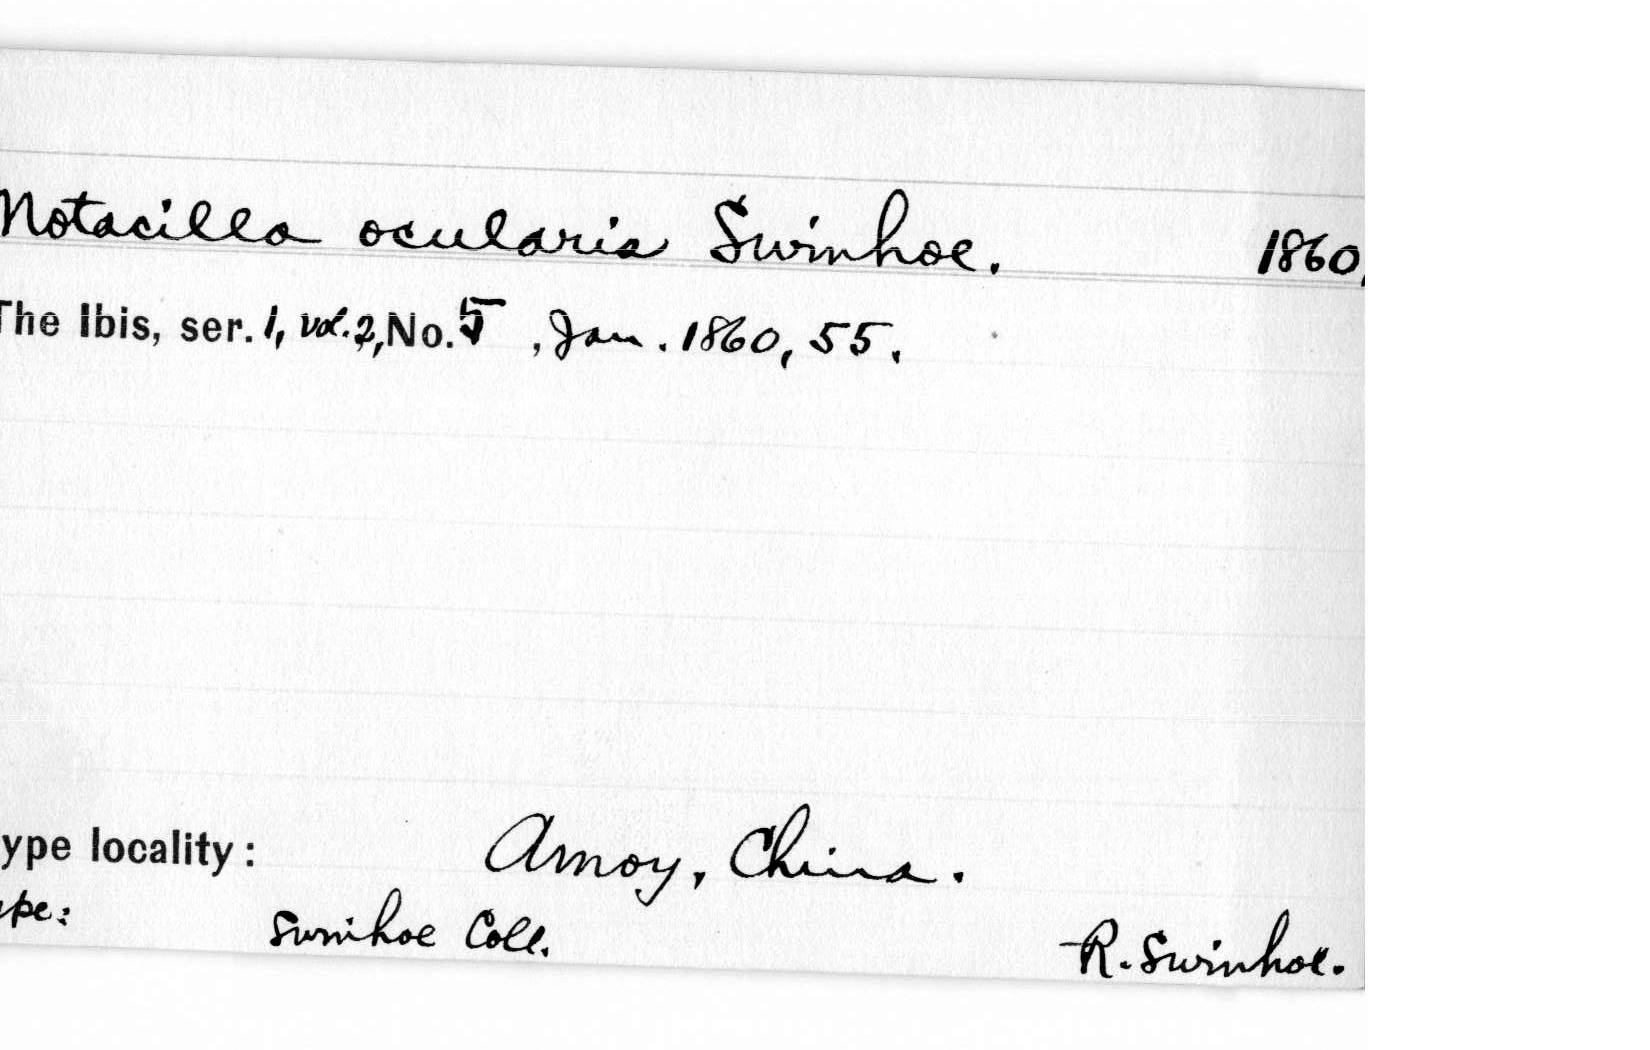 Motacilla ocularis Swinhoe. 1860.
The Ibis, ser. 1, vol. 2, No. 5, Jan. 1860, 55.
ype locality: Amoy, China.
ype: Swinhoe Coll. R. Swinhoe.